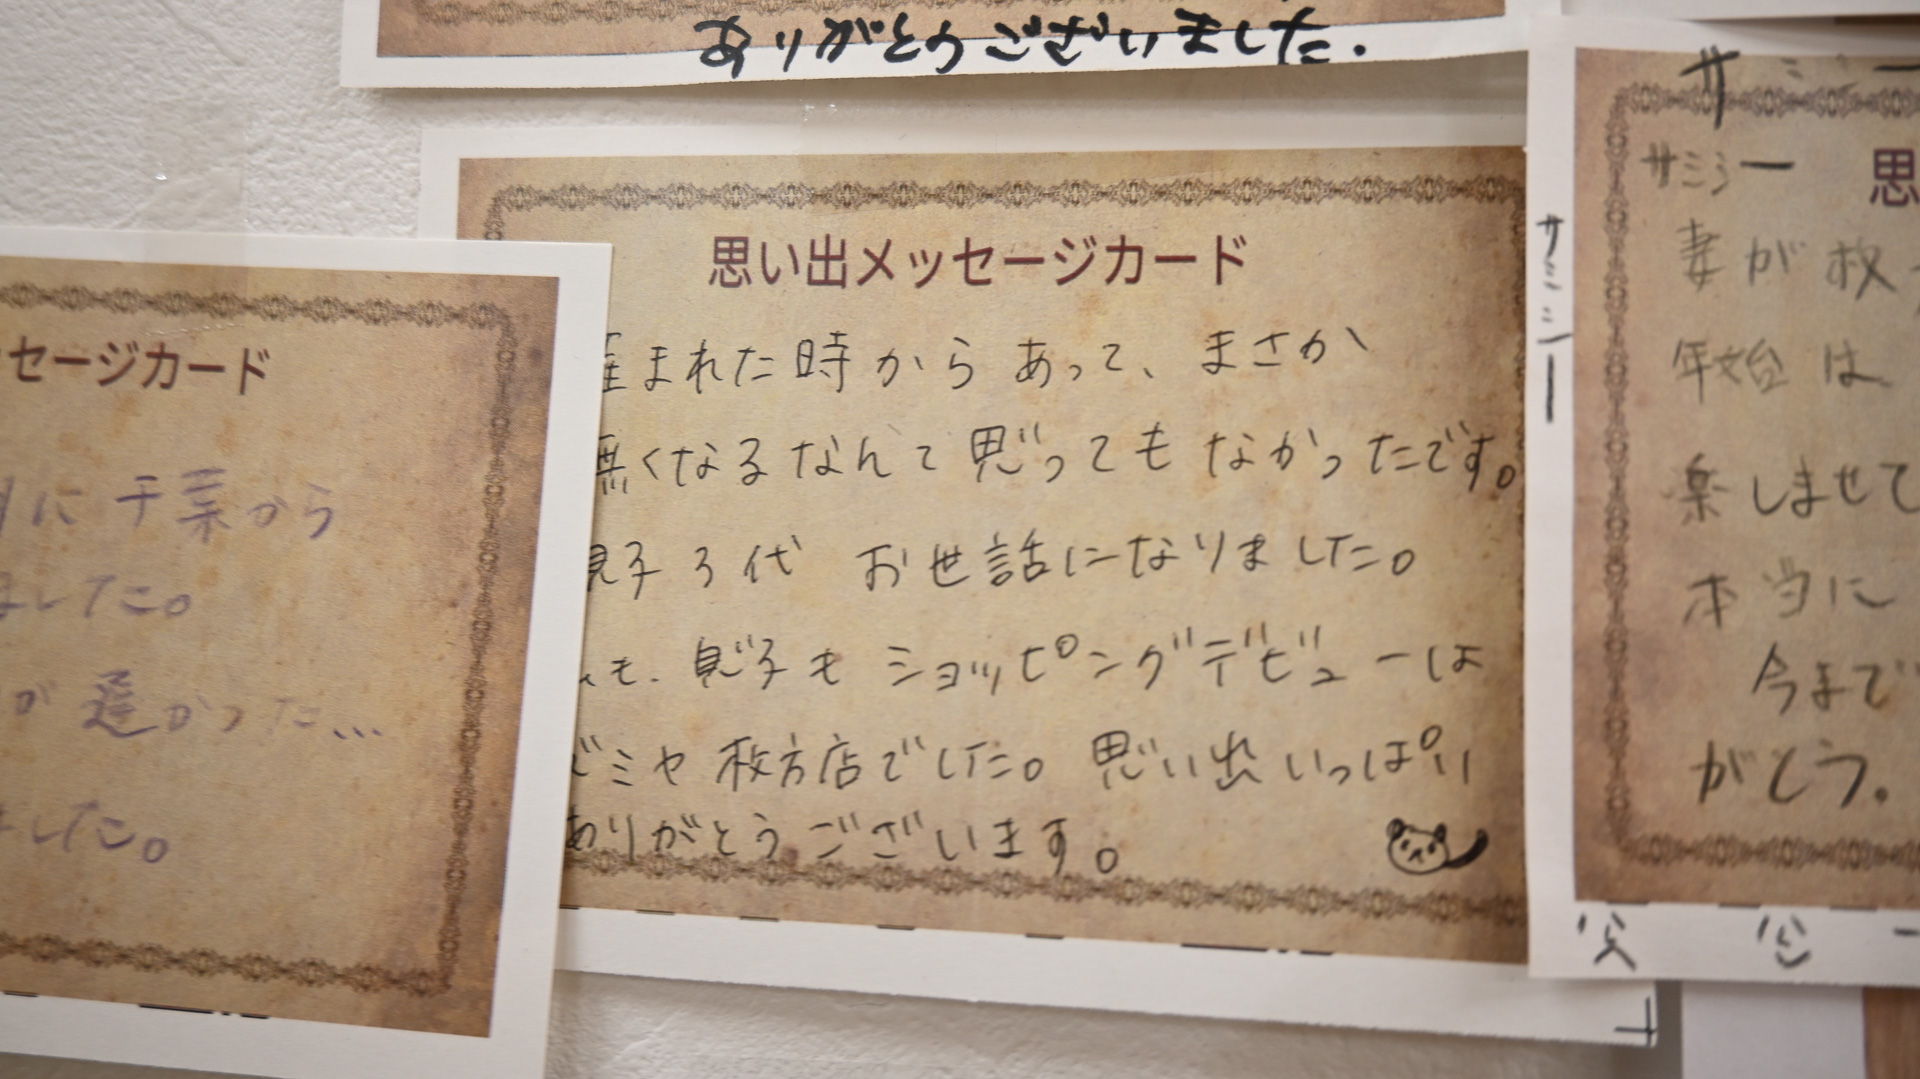 ありがとうございました.
思い出メッセージカード
まれた時からあって、まさか
無くなるなんて思ってもなかったです。
息子 3代 お世話になりました。
も、息子も ショッピングデビューは
ミヤ 枚方店でした。思い出いっぱい
ありがとうございます。
セージカード
に 千葉から
ました。
が 遅かった…
ました。
サミシー
サミシー
思
妻が枚
年始は
楽しませて
本当に
今まで
がとう。